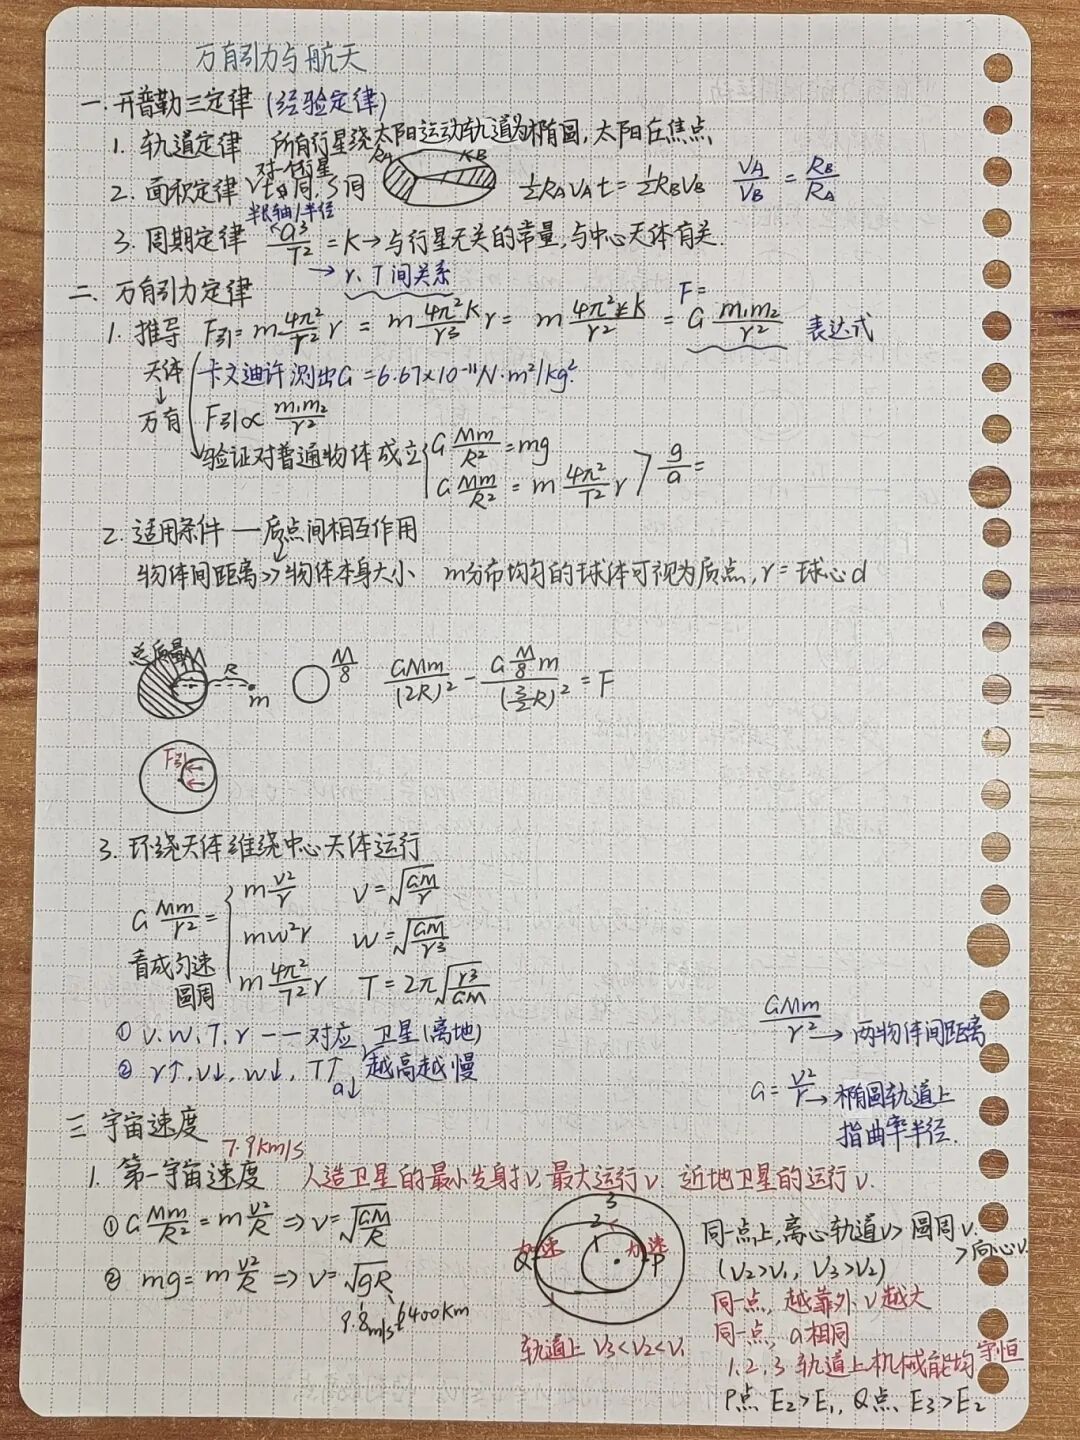 万有引力与航天
一.开普勒三定律（经验定律）
1. 轨道定律 所有行星绕太阳运动轨道为椭圆，太阳在焦点
对一行星
2. 面积定律 t同，S同 RA RB ½RAVAt = ½RBVB VA/VB = RB/RA
半长轴/半径
3. 周期定律 a³/T² = K→与行星无关的常量，与中心天体有关.
→ r、T间关系
二. 万有引力定律
1. 推导 F引 = m 4π²/T² r = m 4π²K/r³ r = m 4π²K/r² = F= G m₁m₂/r² 表达式
天体 卡文迪许测出G = 6.67×10⁻¹¹N·m²/kg².
↓
万有 F引∝ m₁m₂/r²
验证对普通物体成立 { G Mm/R² = mg
G Mm/R² = m 4π²/T² r } g/a =
2. 适用条件 — 质点间相互作用
物体间距离>>物体本身大小 m分布均匀的球体可视为质点，r = 球心d
总质量M R m M/8 GMm/(2R)² - G M/8 m/(3/2 R)² = F
F引
3. 环绕天体维绕中心天体运行
G Mm/r² = { m v²/r v = √(GM/r)
mω²r ω = √(GM/r³)
看成匀速圆周 m 4π²/T² r T = 2π√(r³/GM)
① v、ω、T、r 一一对应 卫星(离地)
② r↑、v↓、ω↓、T↑ a↓ 越高越慢
GMm/r² → 两物体间距离
a = v²/r → 椭圆轨道上
指曲率半径.
三 宇宙速度
7.9km/s
1. 第一宇宙速度 人造卫星的最小发射v，最大运行v. 近地卫星的运行v.
① G Mm/R² = m v²/R ⇒ v = √(GM/R)
② mg = m v²/R ⇒ v = √gR
9.8m/s² 6400km
3
2
1
加速 Q
加速 P
轨道上 V3<V2<V1
同一点上，离心轨道v > 圆周v. > 向心v.
(V2>V1, V3>V2)
同一点，越靠外 v越大
同一点，a相同
1、2、3 轨道上机械能均守恒
P点 E2>E1, Q点 E3>E2